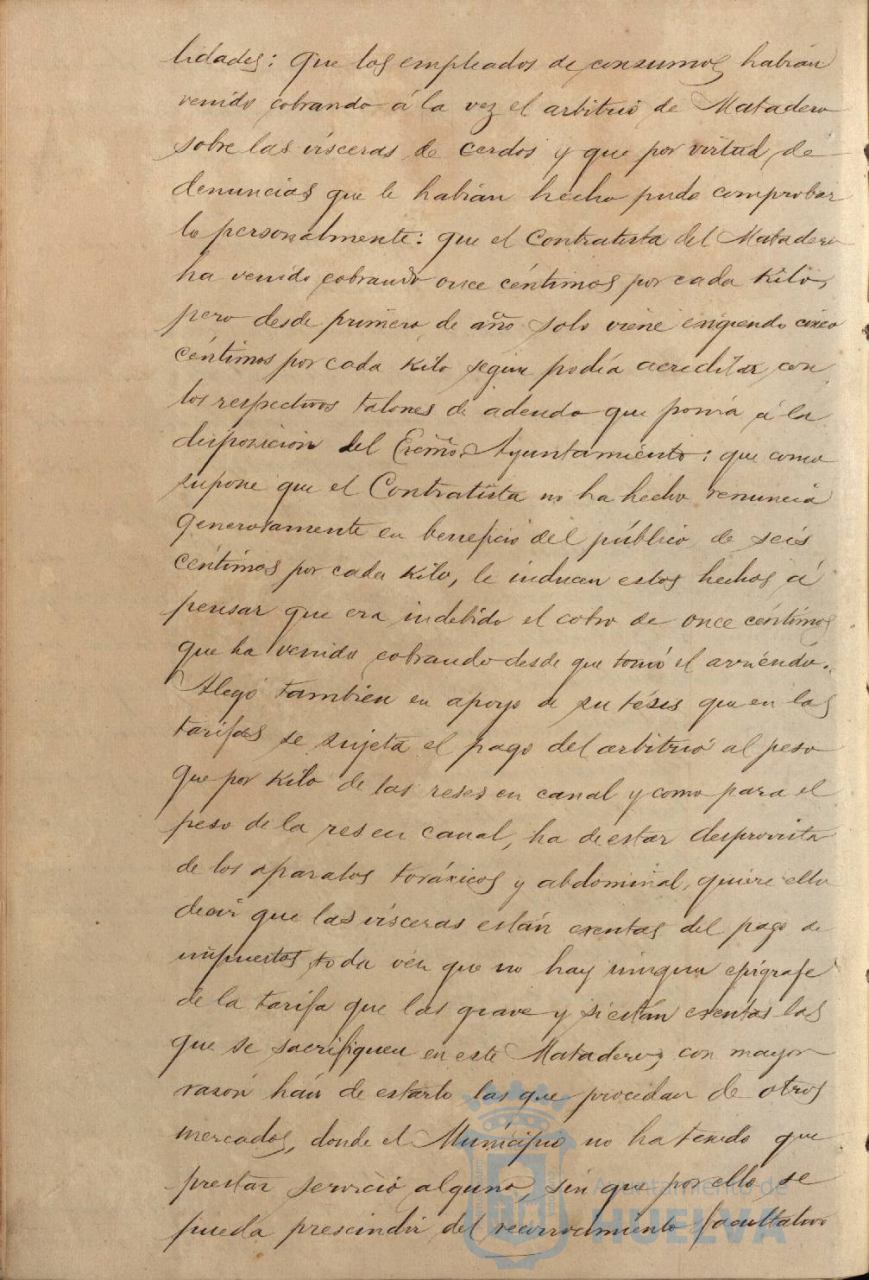 lidades: que los empleados de consumos habian
venido cobrando á la vez el arbitrio de Matadero
sobre las vísceras de cerdos y que por virtud de
denuncias que le habian hecho pudo comprobar
lo personalmente: que el Contratista del Matadero
ha venido cobrando once céntimos por cada Kilo,
pero desde primero de año solo viene exigiendo cinco
céntimos por cada Kilo segun podía acreditar con
los respectivos talones de adeudo que ponia á la
disposición del Excmo. Ayuntamiento: que como
supone que el Contratista no ha hecho renuncia
generosamente en beneficio del público, de seis
céntimos por cada Kilo, le inducen estos hechos á
pensar que era indebido el cobro de once céntimos
que ha venido cobrando desde que tomó el arriendo.
Alegó tambien en apoyo de su tésis que en las
tarifas se sujeta el pago del arbitrio al peso
que por Kilo de las reses en canal y como para el
peso de la res en canal, ha de estar desprovista
de los aparatos toráxicos y abdominal, quiere ello
decir que las vísceras están exentas del pago de
impuestos, toda vez que no hay ningun epígrafe
de la tarifa que las grave y si están exentas las
que se sacrifiquen en este Matadero, con mayor
razón han de estarlo las que procedan de otros
mercados, donde el Municipio no ha tenido que
prestar servicio alguno, sin que por ello se
pueda prescindir del reconocimiento facultativo
Ayuntamiento de
HUELVA